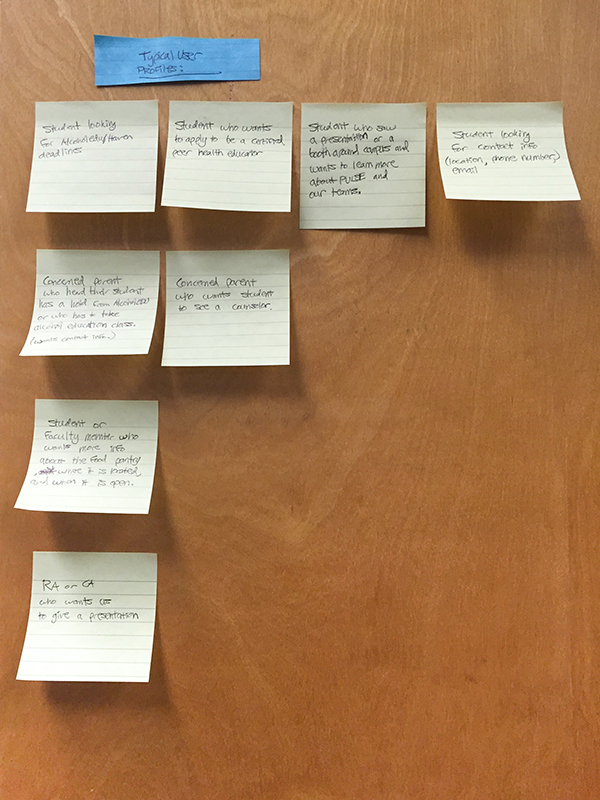 Typical User
Profiles:
Student looking
for AlcoholEdu/Haven
deadlines
Student who wants
to apply to be a certified
peer health educator
Student who saw
a presentation or a
booth around campus and
wants to learn more
about PULSE and
our teams.
Student looking
for contact info
(location, phone number,)
email
Concerned parent
who heard their student
has a hold from AlcoholEDU
or who has to take
alcohol education class.
(wants contact info.)
Concerned parent
who wants student
to see a counselor.
Student or
Faculty member who
wants more info
about the food pantry
where it is located,
and when it is open.
RA or CA
who wants us
to give a presentation